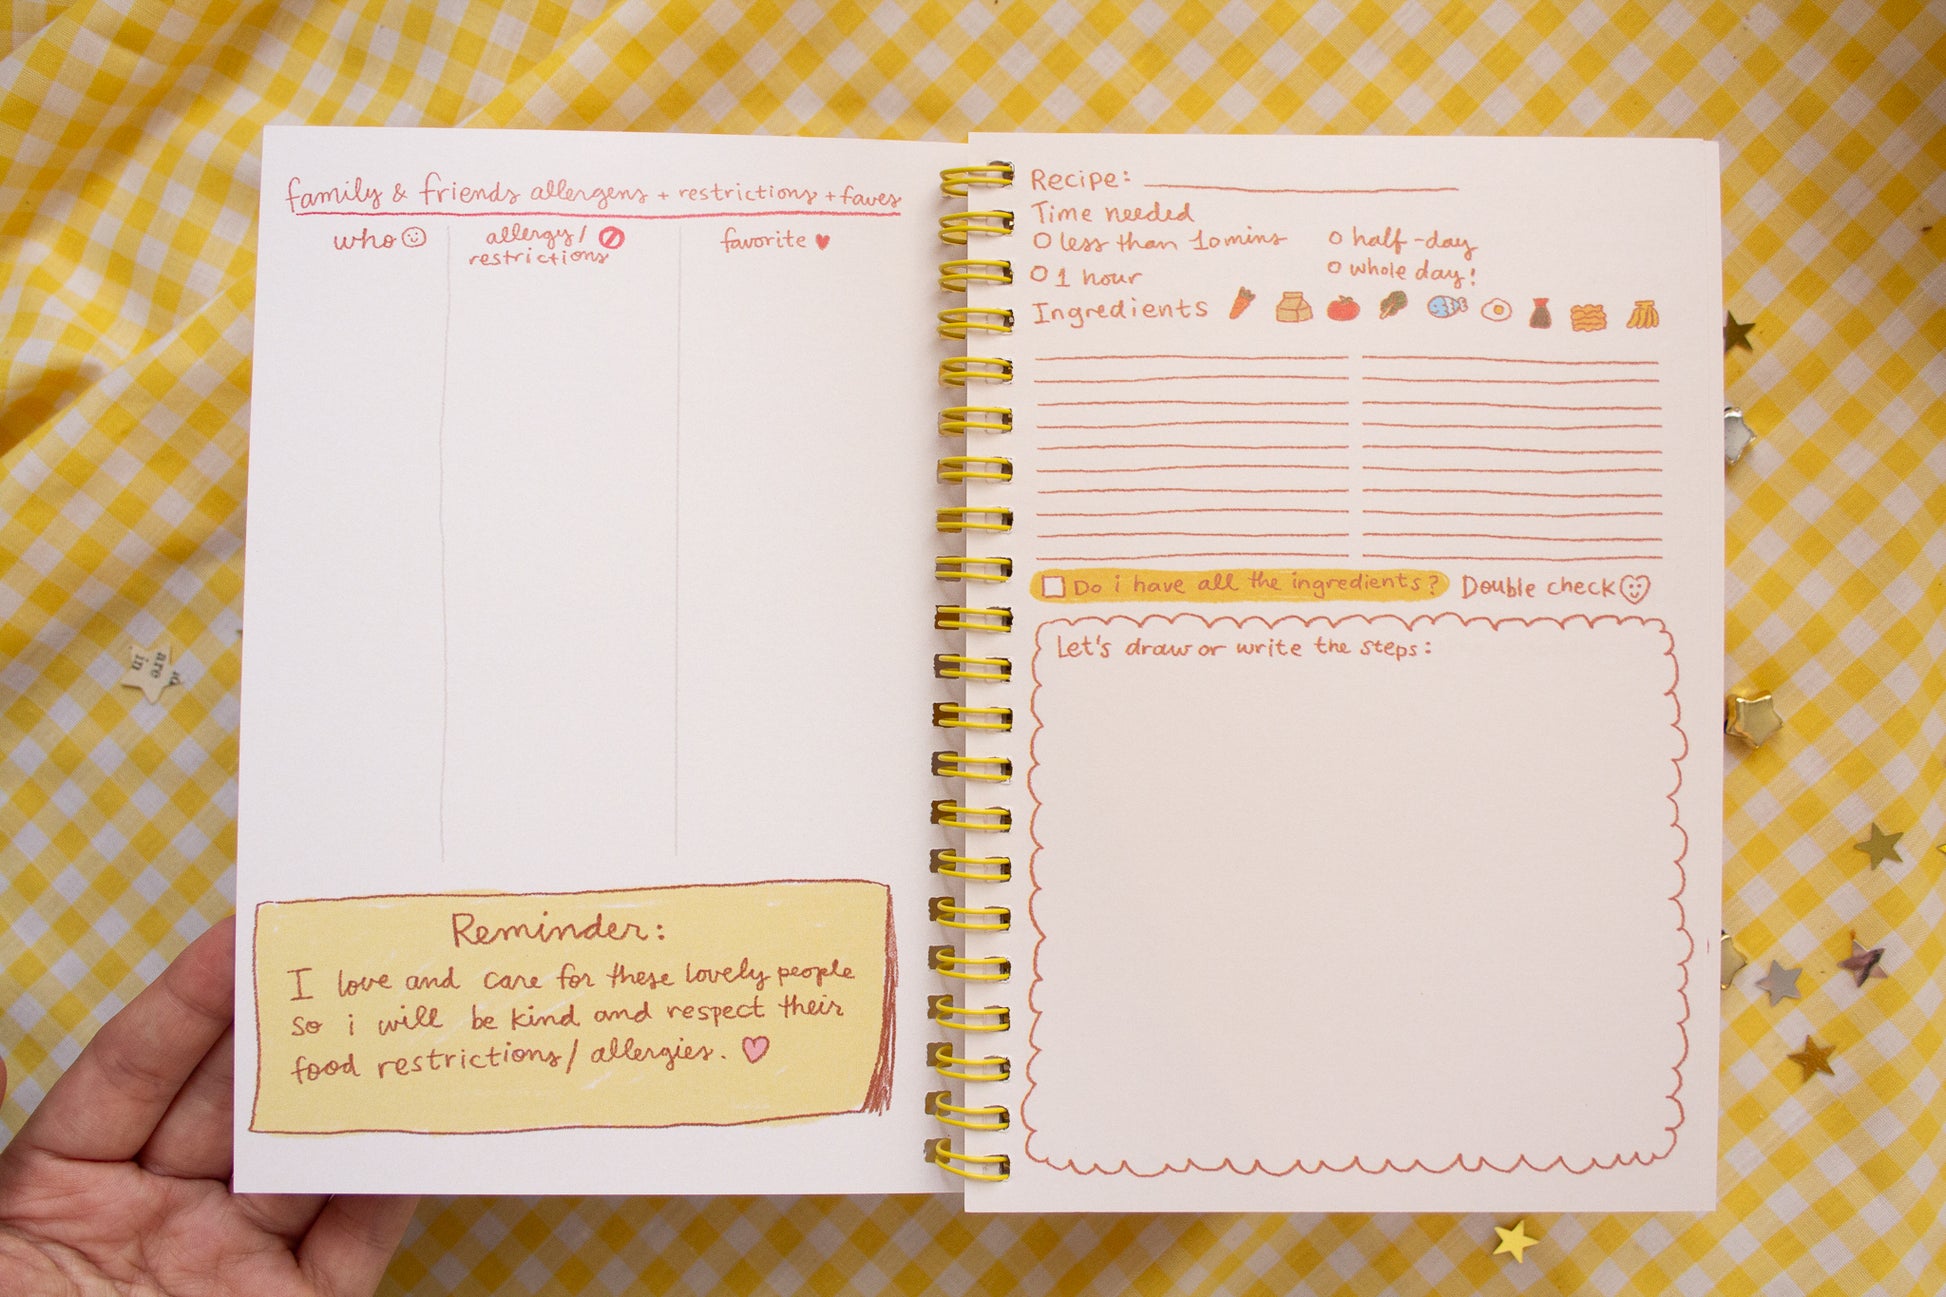 family & friends allergens + restrictions + faves
who
allergy/
restrictions
favorite
Reminder:
I love and care for these lovely people
so i will be kind and respect their
food restrictions/allergies.
Recipe:
Time needed
less than 10 mins
half-day
1 hour
whole day!
Ingredients
Do i have all the ingredients?
Double check
Let's draw or write the steps:
are
in